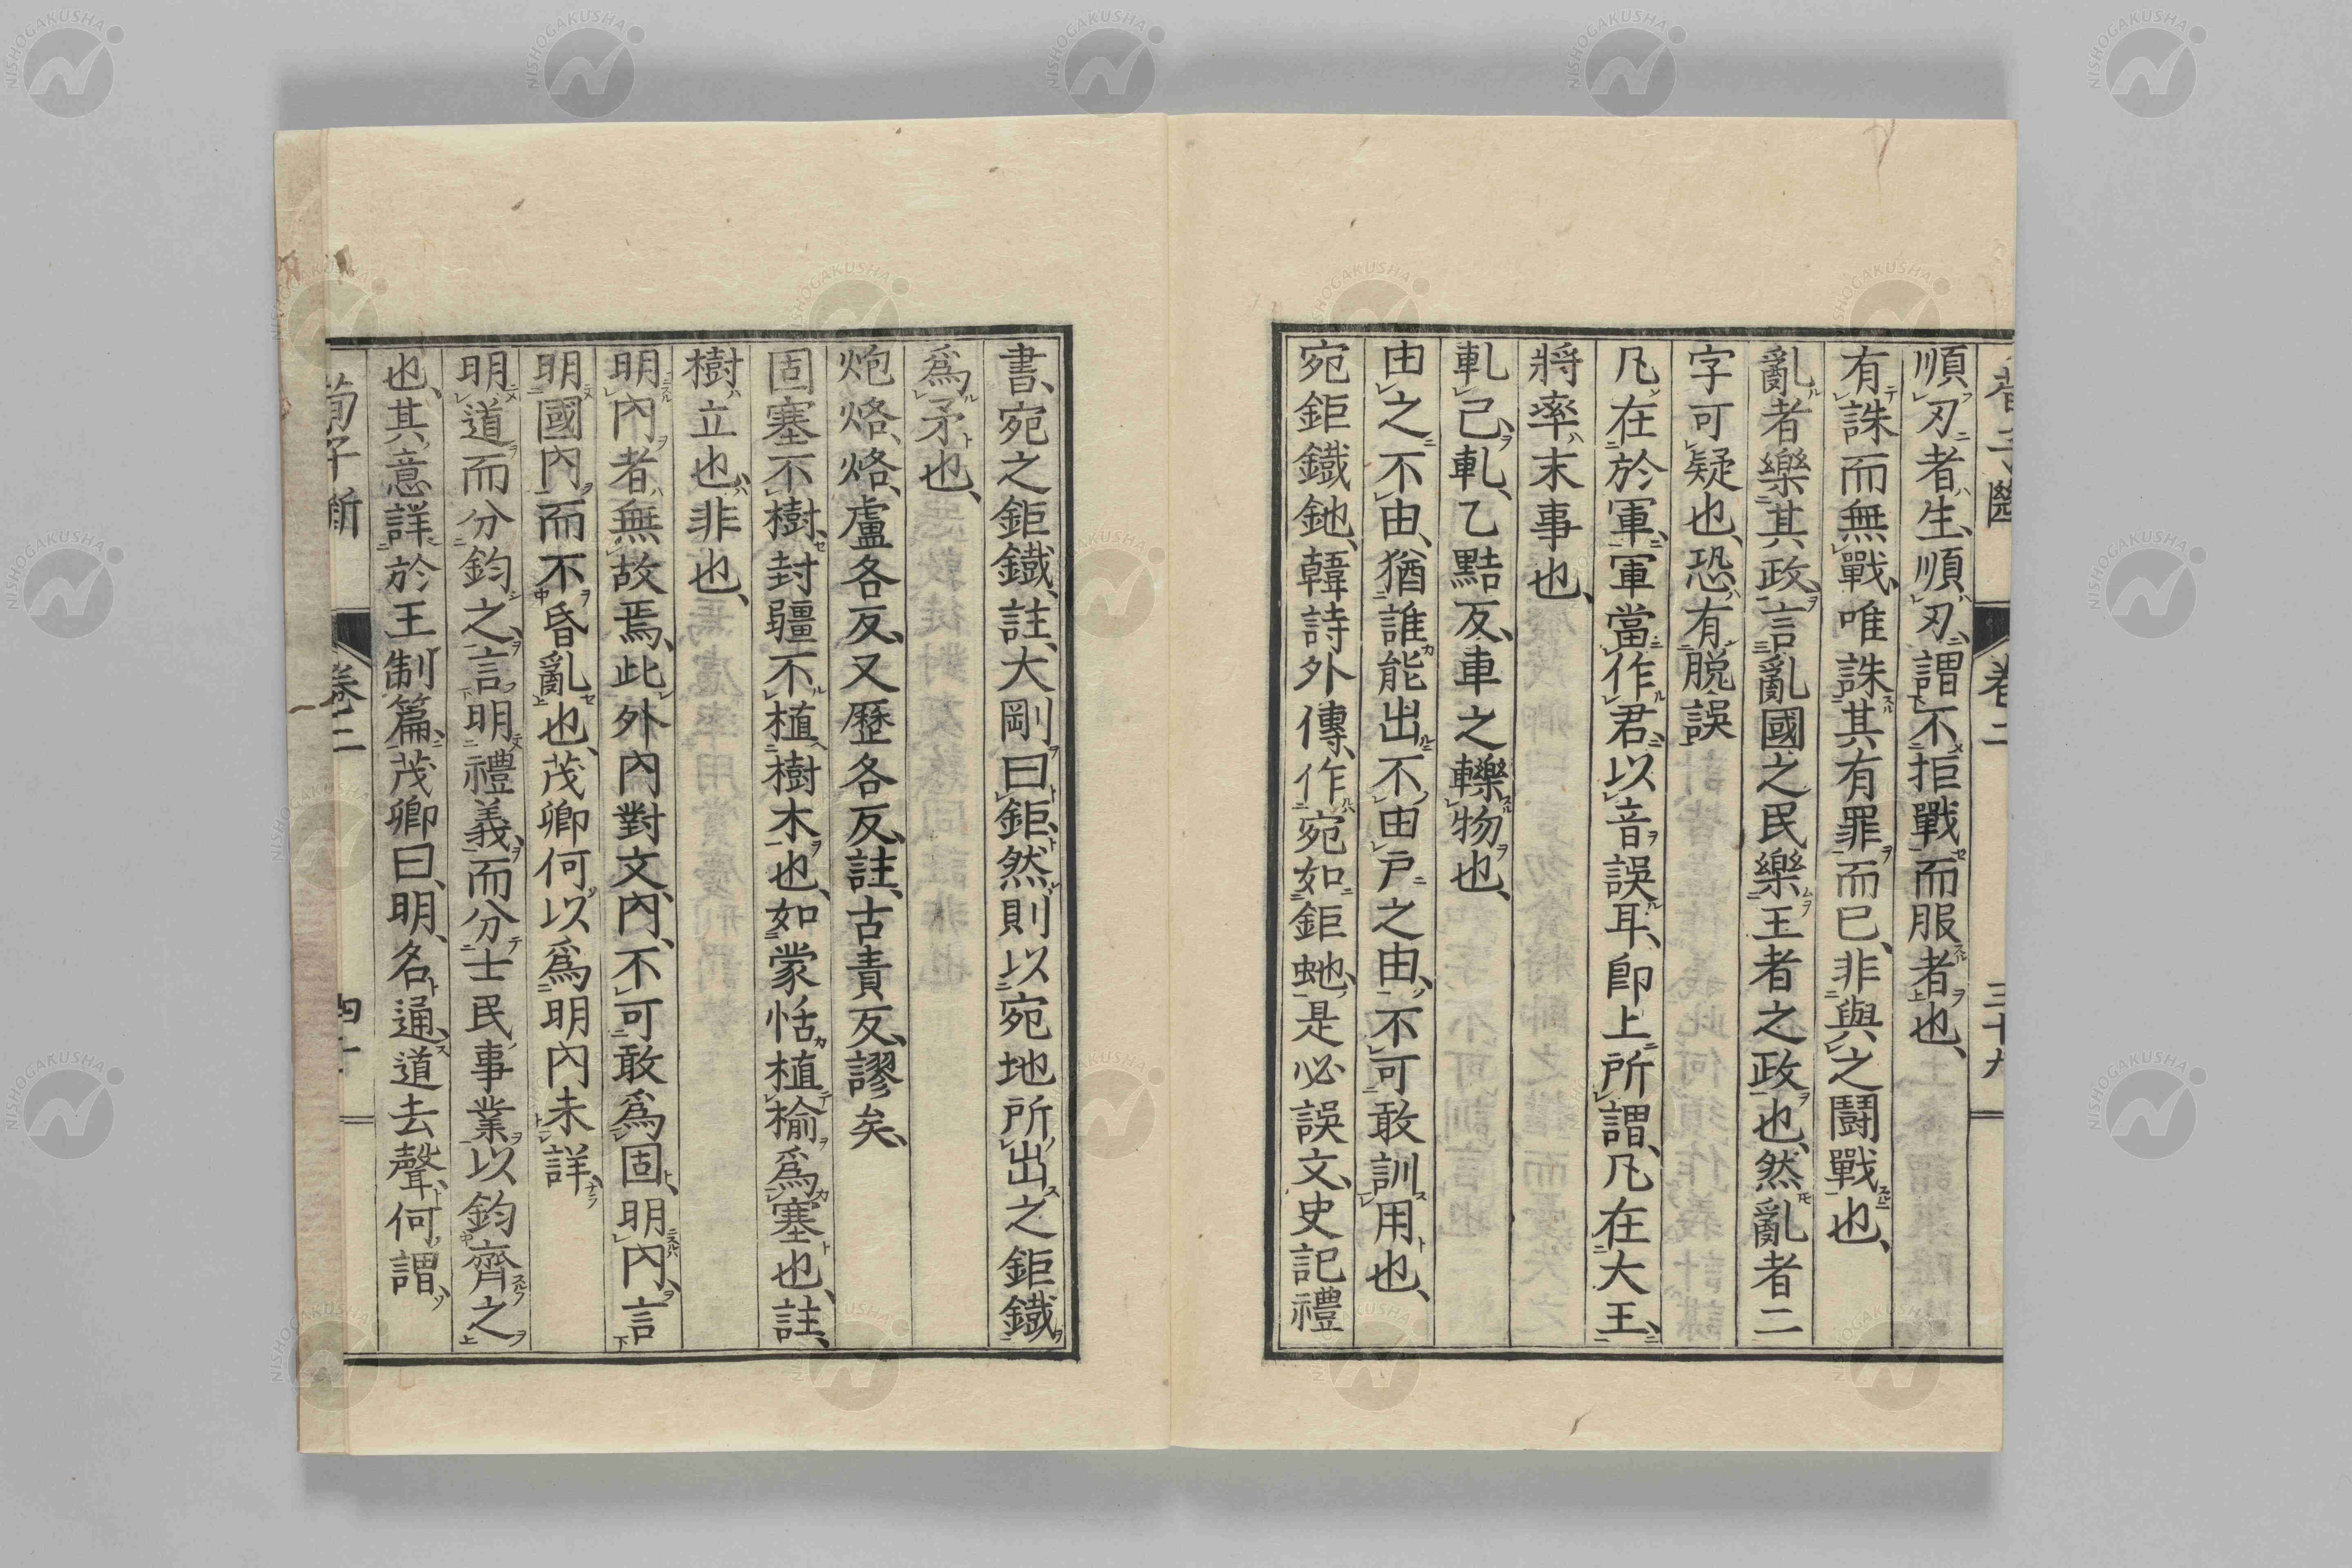 順刃者生、順刃、謂不拒戰而服者也、
有誅而無戰、唯誅其有罪而已、非與之鬪戰也、
亂者樂其政、言亂國之民樂王者之政也、然亂者二
字可疑也、恐有脱誤
凡在於軍、軍當作君、以音誤耳、卽上所謂、凡在大王、
將率末事也、
軋己、軋、乙黠反、車之轢物也、
由之不由、猶誰能出不由戸之由、不可敢訓用也、
宛鉅鐵釶、韓詩外傳、作宛如鉅虵、是必誤文、史記禮
卷二
三十九
書、宛之鉅鐵、註、大剛曰鉅、然則以宛地所出之鉅鐵
爲矛也、
炮烙、烙、盧各反、又歷各反、註、古責反、謬矣、
固塞不樹、封疆不植樹木也、如蒙恬植榆爲塞也、註、
樹、立也、非也、
明內者、無故焉、此外內對文、內、不可敢爲固、明內、言
明國內而不昏亂也、茂卿何以爲明內未詳、
明道而分鈞之、言明禮義、而分士民事業以鈞齊之
也、其意詳於王制篇、茂卿曰、明、名通、道去聲、何謂、
荀子斷
卷二
四十
NISHOGAKUSHA